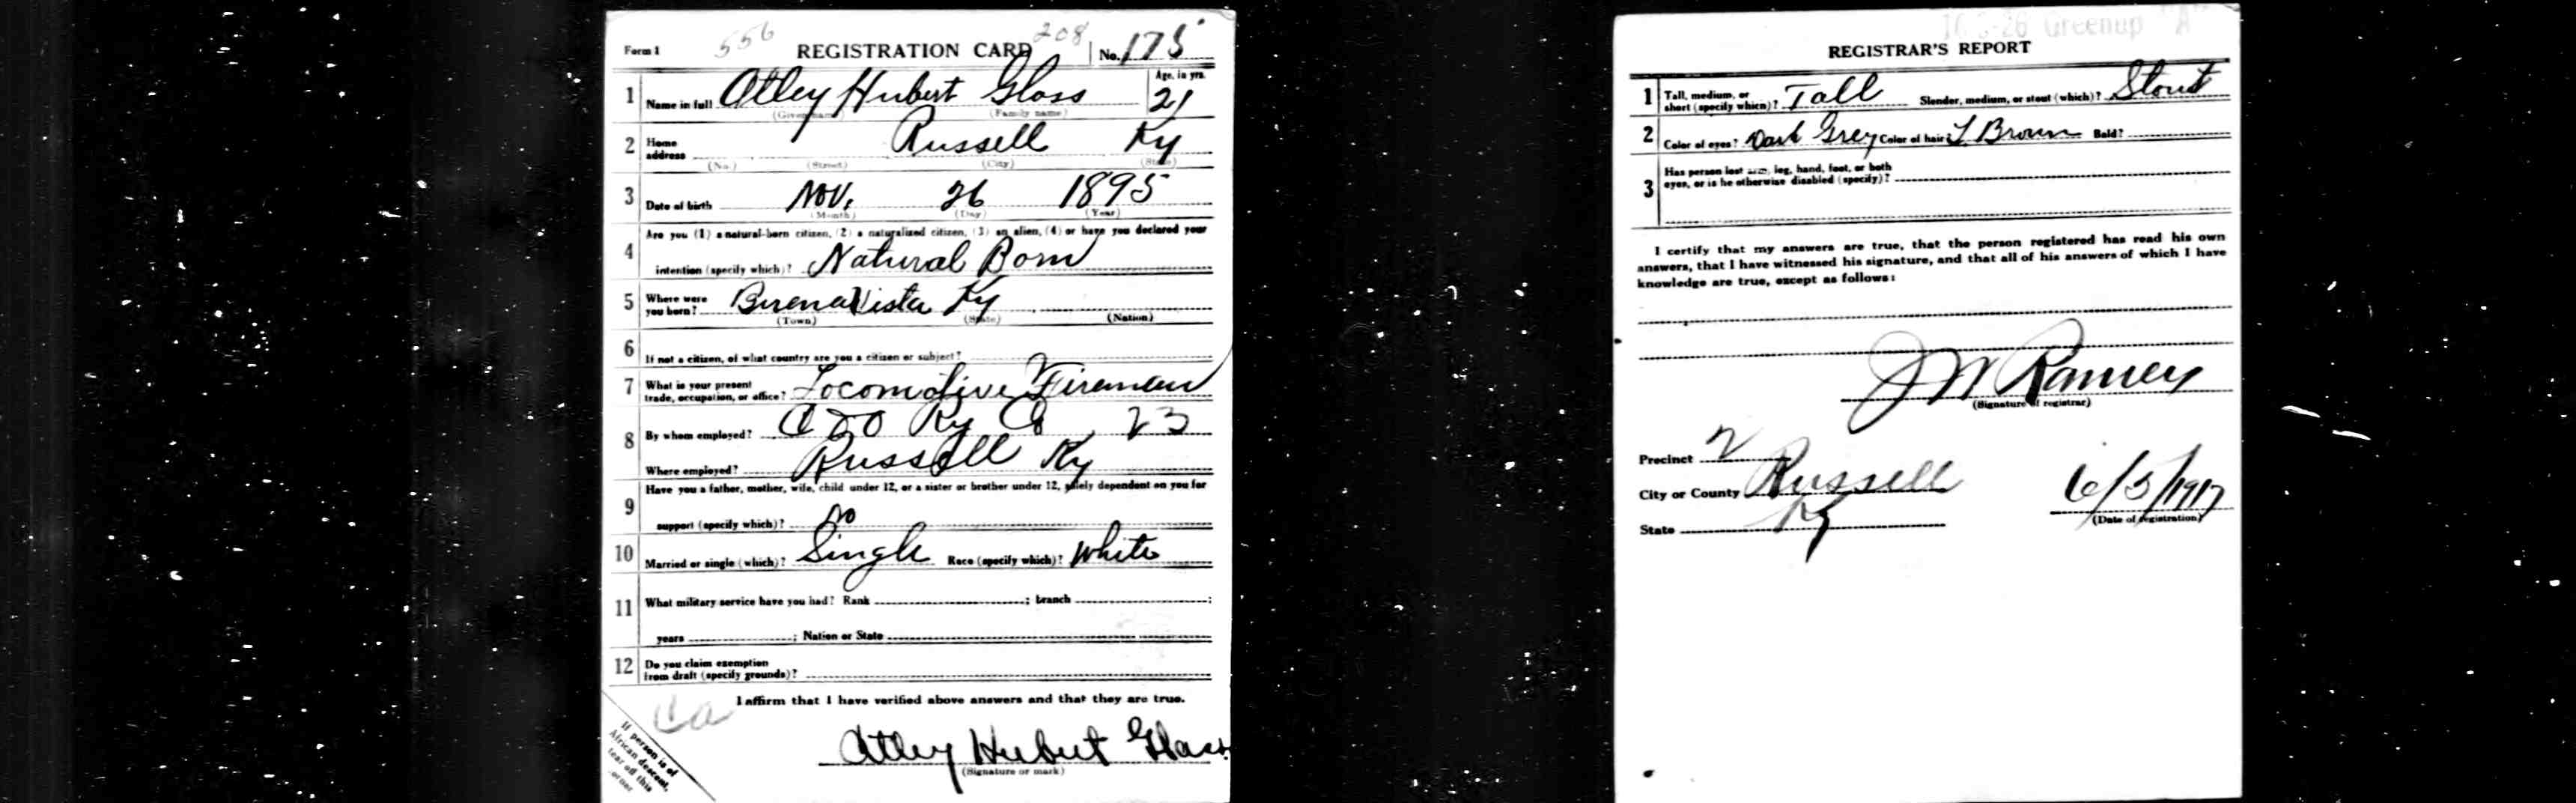 556 208
Form 1 REGISTRATION CARD No. 175
1 Name in full Atley Hubert Glass Age, in yrs. 21
(Given name) (Family name)
2 Home address Russell Ky
(No.) (Street) (City) (State)
3 Date of birth Nov. 26 1895
(Month) (Day) (Year)
4 Are you (1) a natural-born citizen, (2) a naturalized citizen, (3) an alien, (4) or have you declared your
intention (specify which)? Natural Born
5 Where were you born? Buena Vista Ky
(Town) (State) (Nation)
6 If not a citizen, of what country are you a citizen or subject?
7 What is your present trade, occupation, or office? Locomotive Fireman
8 By whom employed? C & O Ry Co 23
Where employed? Russell Ky
9 Have you a father, mother, wife, child under 12, or a sister or brother under 12, solely dependent on you for
support (specify which)? No
10 Married or single (which)? Single Race (specify which)? White
11 What military service have you had? Rank ; branch ;
years ; Nation or State
12 Do you claim exemption from draft (specify grounds)?
I affirm that I have verified above answers and that they are true.
Atley Hubert Glass
(Signature or mark)
If person is of
African descent,
tear off this
corner
Greenup A
REGISTRAR'S REPORT
1 Tall, medium, or short (specify which)? Tall Slender, medium, or stout (which)? Stout
2 Color of eyes? Dark Grey Color of hair? L Brown Bald?
3 Has person lost arm, leg, hand, foot, or both
eyes, or is he otherwise disabled (specify)?
I certify that my answers are true, that the person registered has read his own
answers, that I have witnessed his signature, and that all of his answers of which I have
knowledge are true, except as follows:
J W Ramey
(Signature of registrar)
Precinct 2
City or County Russell 6/5/1917
State Ky (Date of registration)